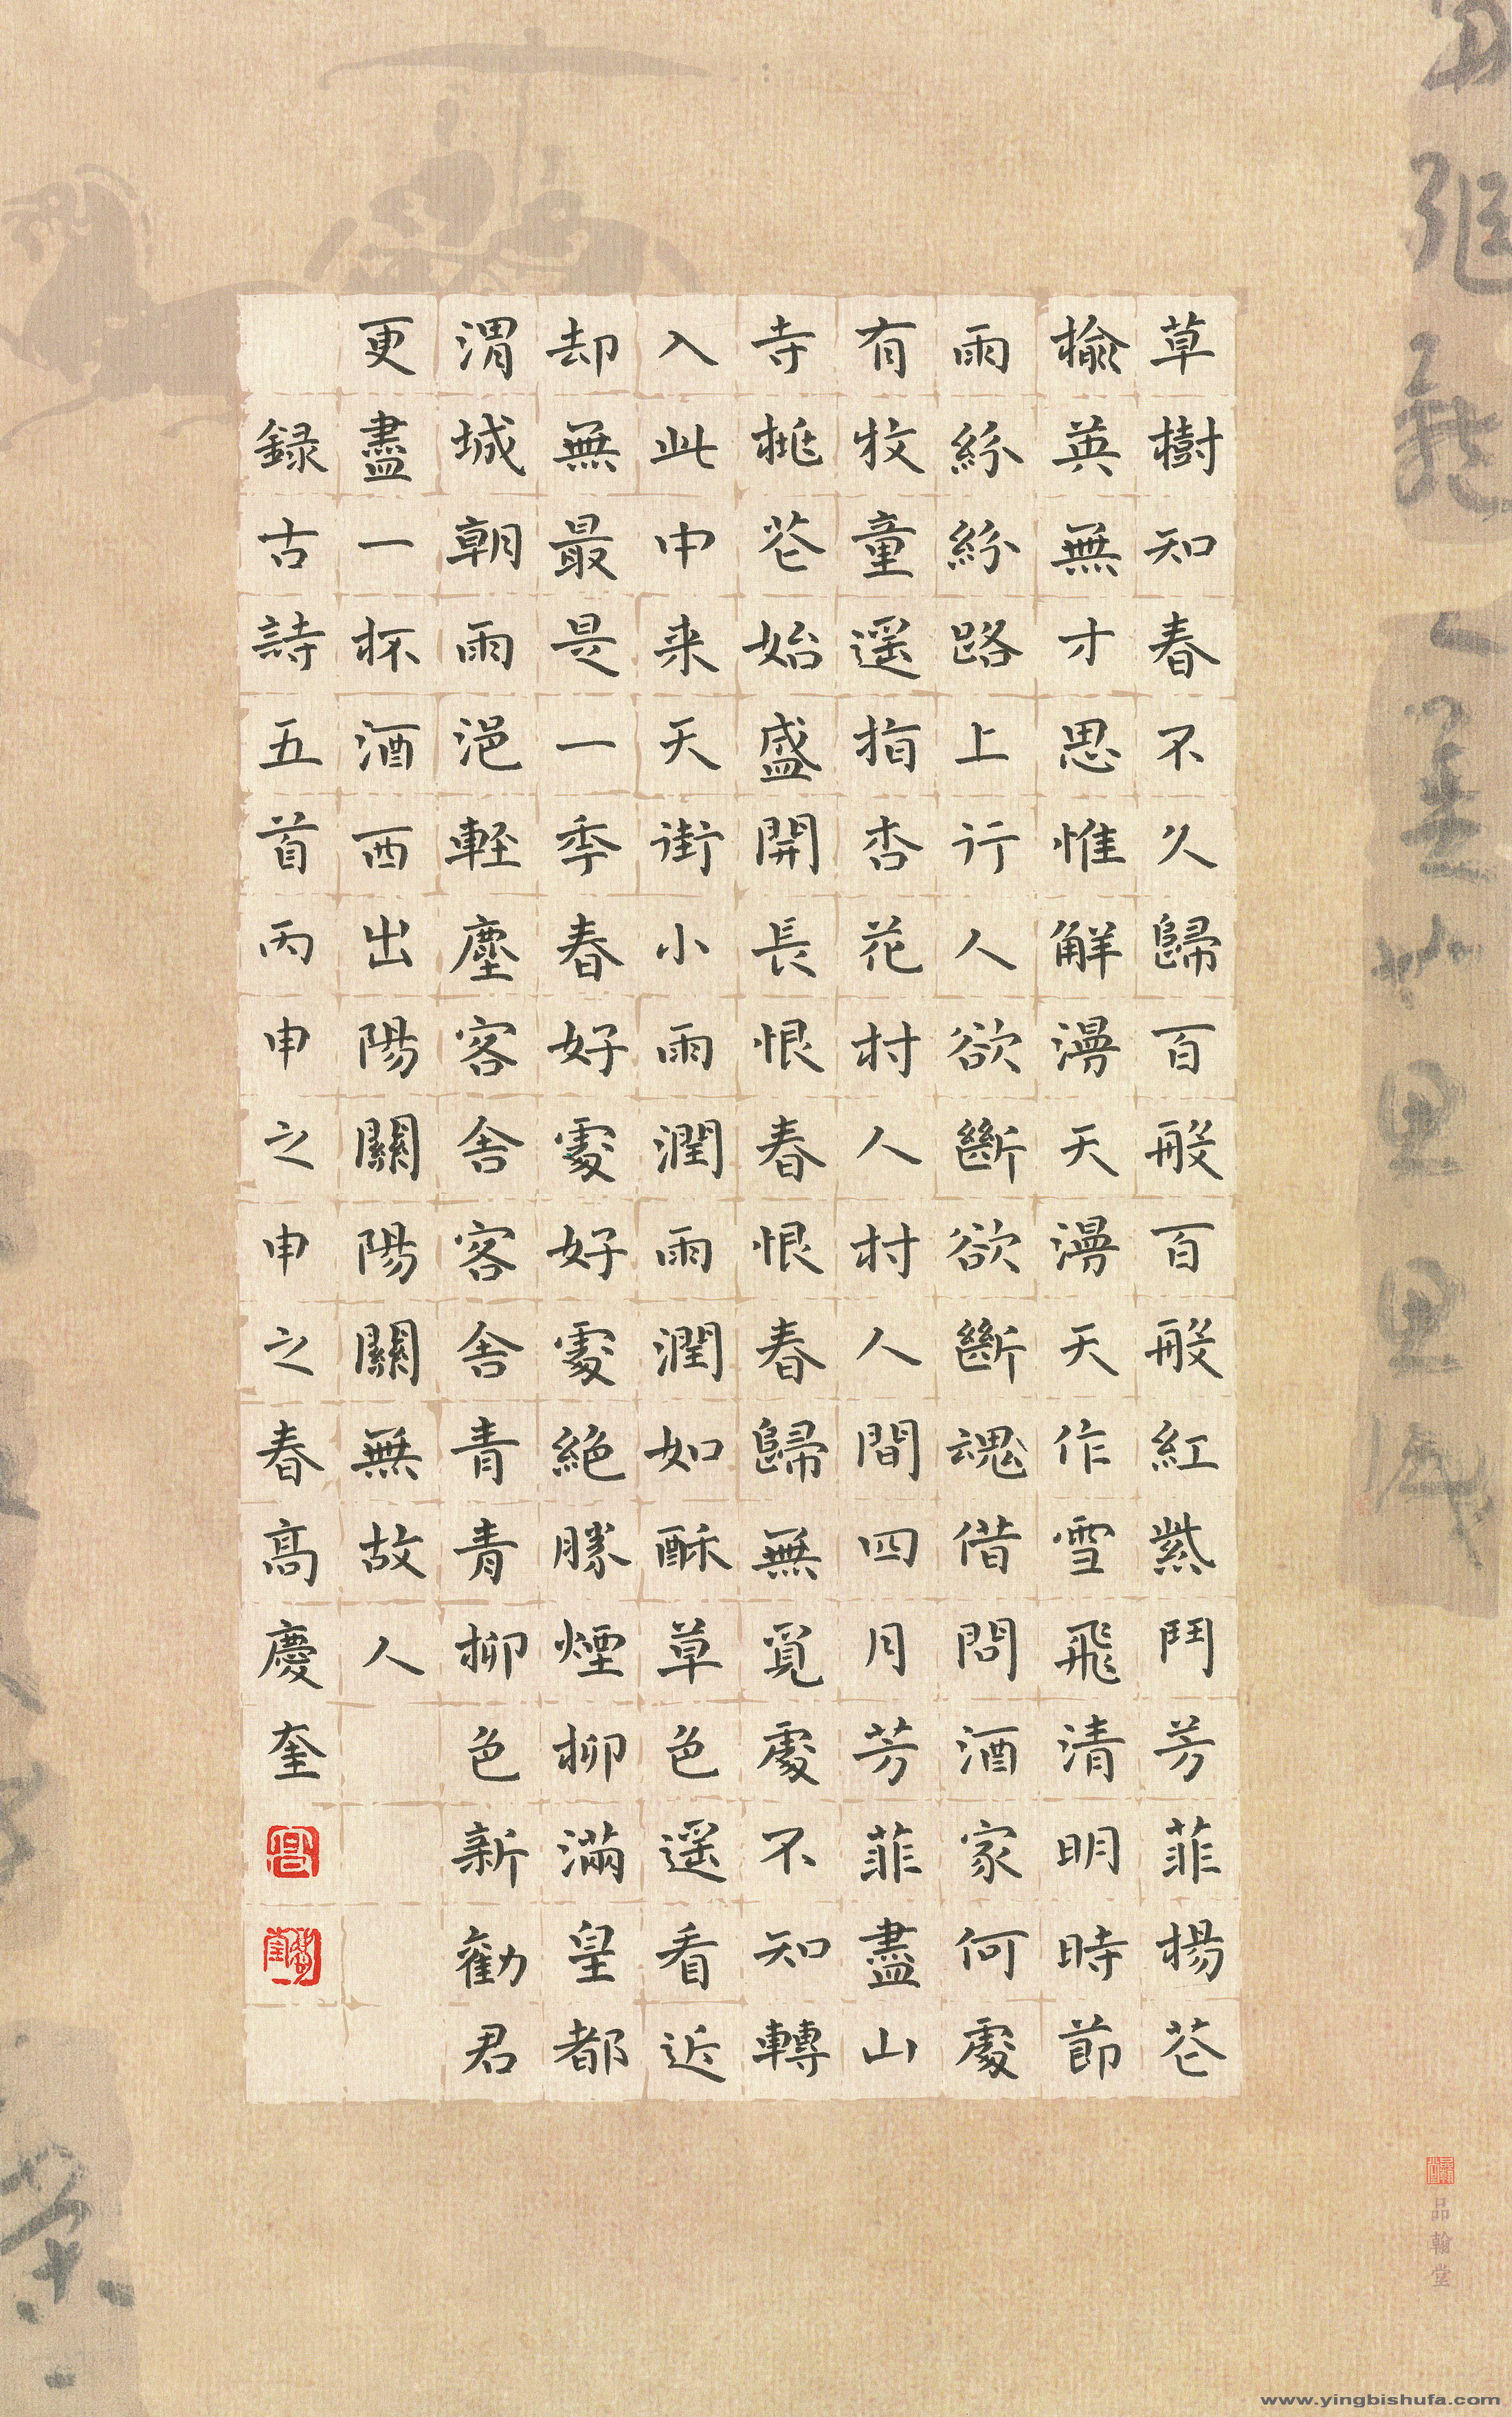 草樹知春不久歸百般百般紅紫鬥芳菲楊花
榆英無才思惟解漫天漫天作雪飛清明時節
雨紛紛路上行人欲斷欲斷魂借問酒家何處
有牧童遥指杏花村人村人間四月芳菲盡山
寺桃花始盛開長恨春恨春歸無覓處不知轉
入此中来天街小雨潤雨潤如酥草色遥看近
却無最是一季春好處好處絕勝煙柳滿皇都
渭城朝雨浥輕塵客舍客舍青青柳色新勸君
更盡一杯酒西出陽關陽關無故人
録古詩五首丙申之申之春高慶奎
品翰堂
www.yingbishufa.com